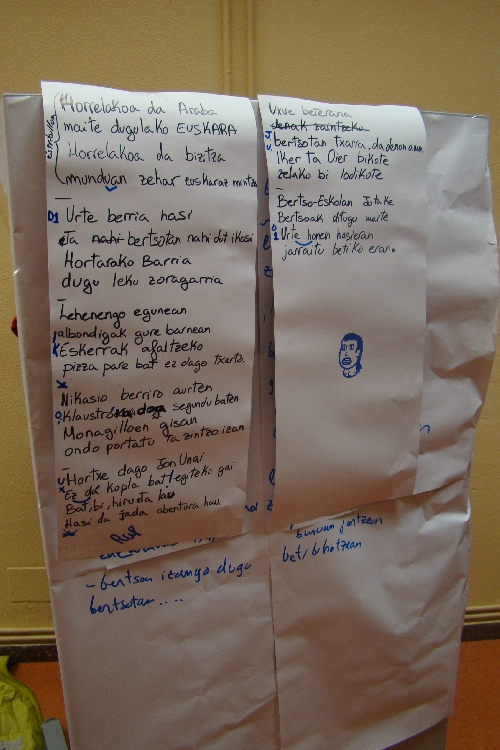 Horrelakoa da Araba
maite dugulako EUSKARA
Horrelakoa da bizitza
munduan zehar euskaraz mintza
Urte berria hasi
eta nahi bertsotan nahi dut ikasi
Hortarako Barria
dugu leku zoragarria
Lehenengo egunean
albondigak gure barnean
Eskerrak afaltzeko
pizza pare bat ez dago txarto.
Nikasio berriro aurten
Klaustroko segundu baten
Monagilloen gisan
ondo portatu ta zintzo izan
Hortxe dago Jon Unai
Ez da kopla bat egiteko gai
Bat, bi, hiru eta lau
Hasi da jada abentura hau
beterana
denak zaintzeko
bertsotan txarra, da denon ama
Iker ta Oier bikote
zelako bi lodikote
Bertso-Eskolan Jotake
Bertsoak ditugu maite
Urte honen hasieran
jarraitu betiko eran.
- bertsoa izango dugu
bertsotan....
buruan jantzean
beti bihotzean